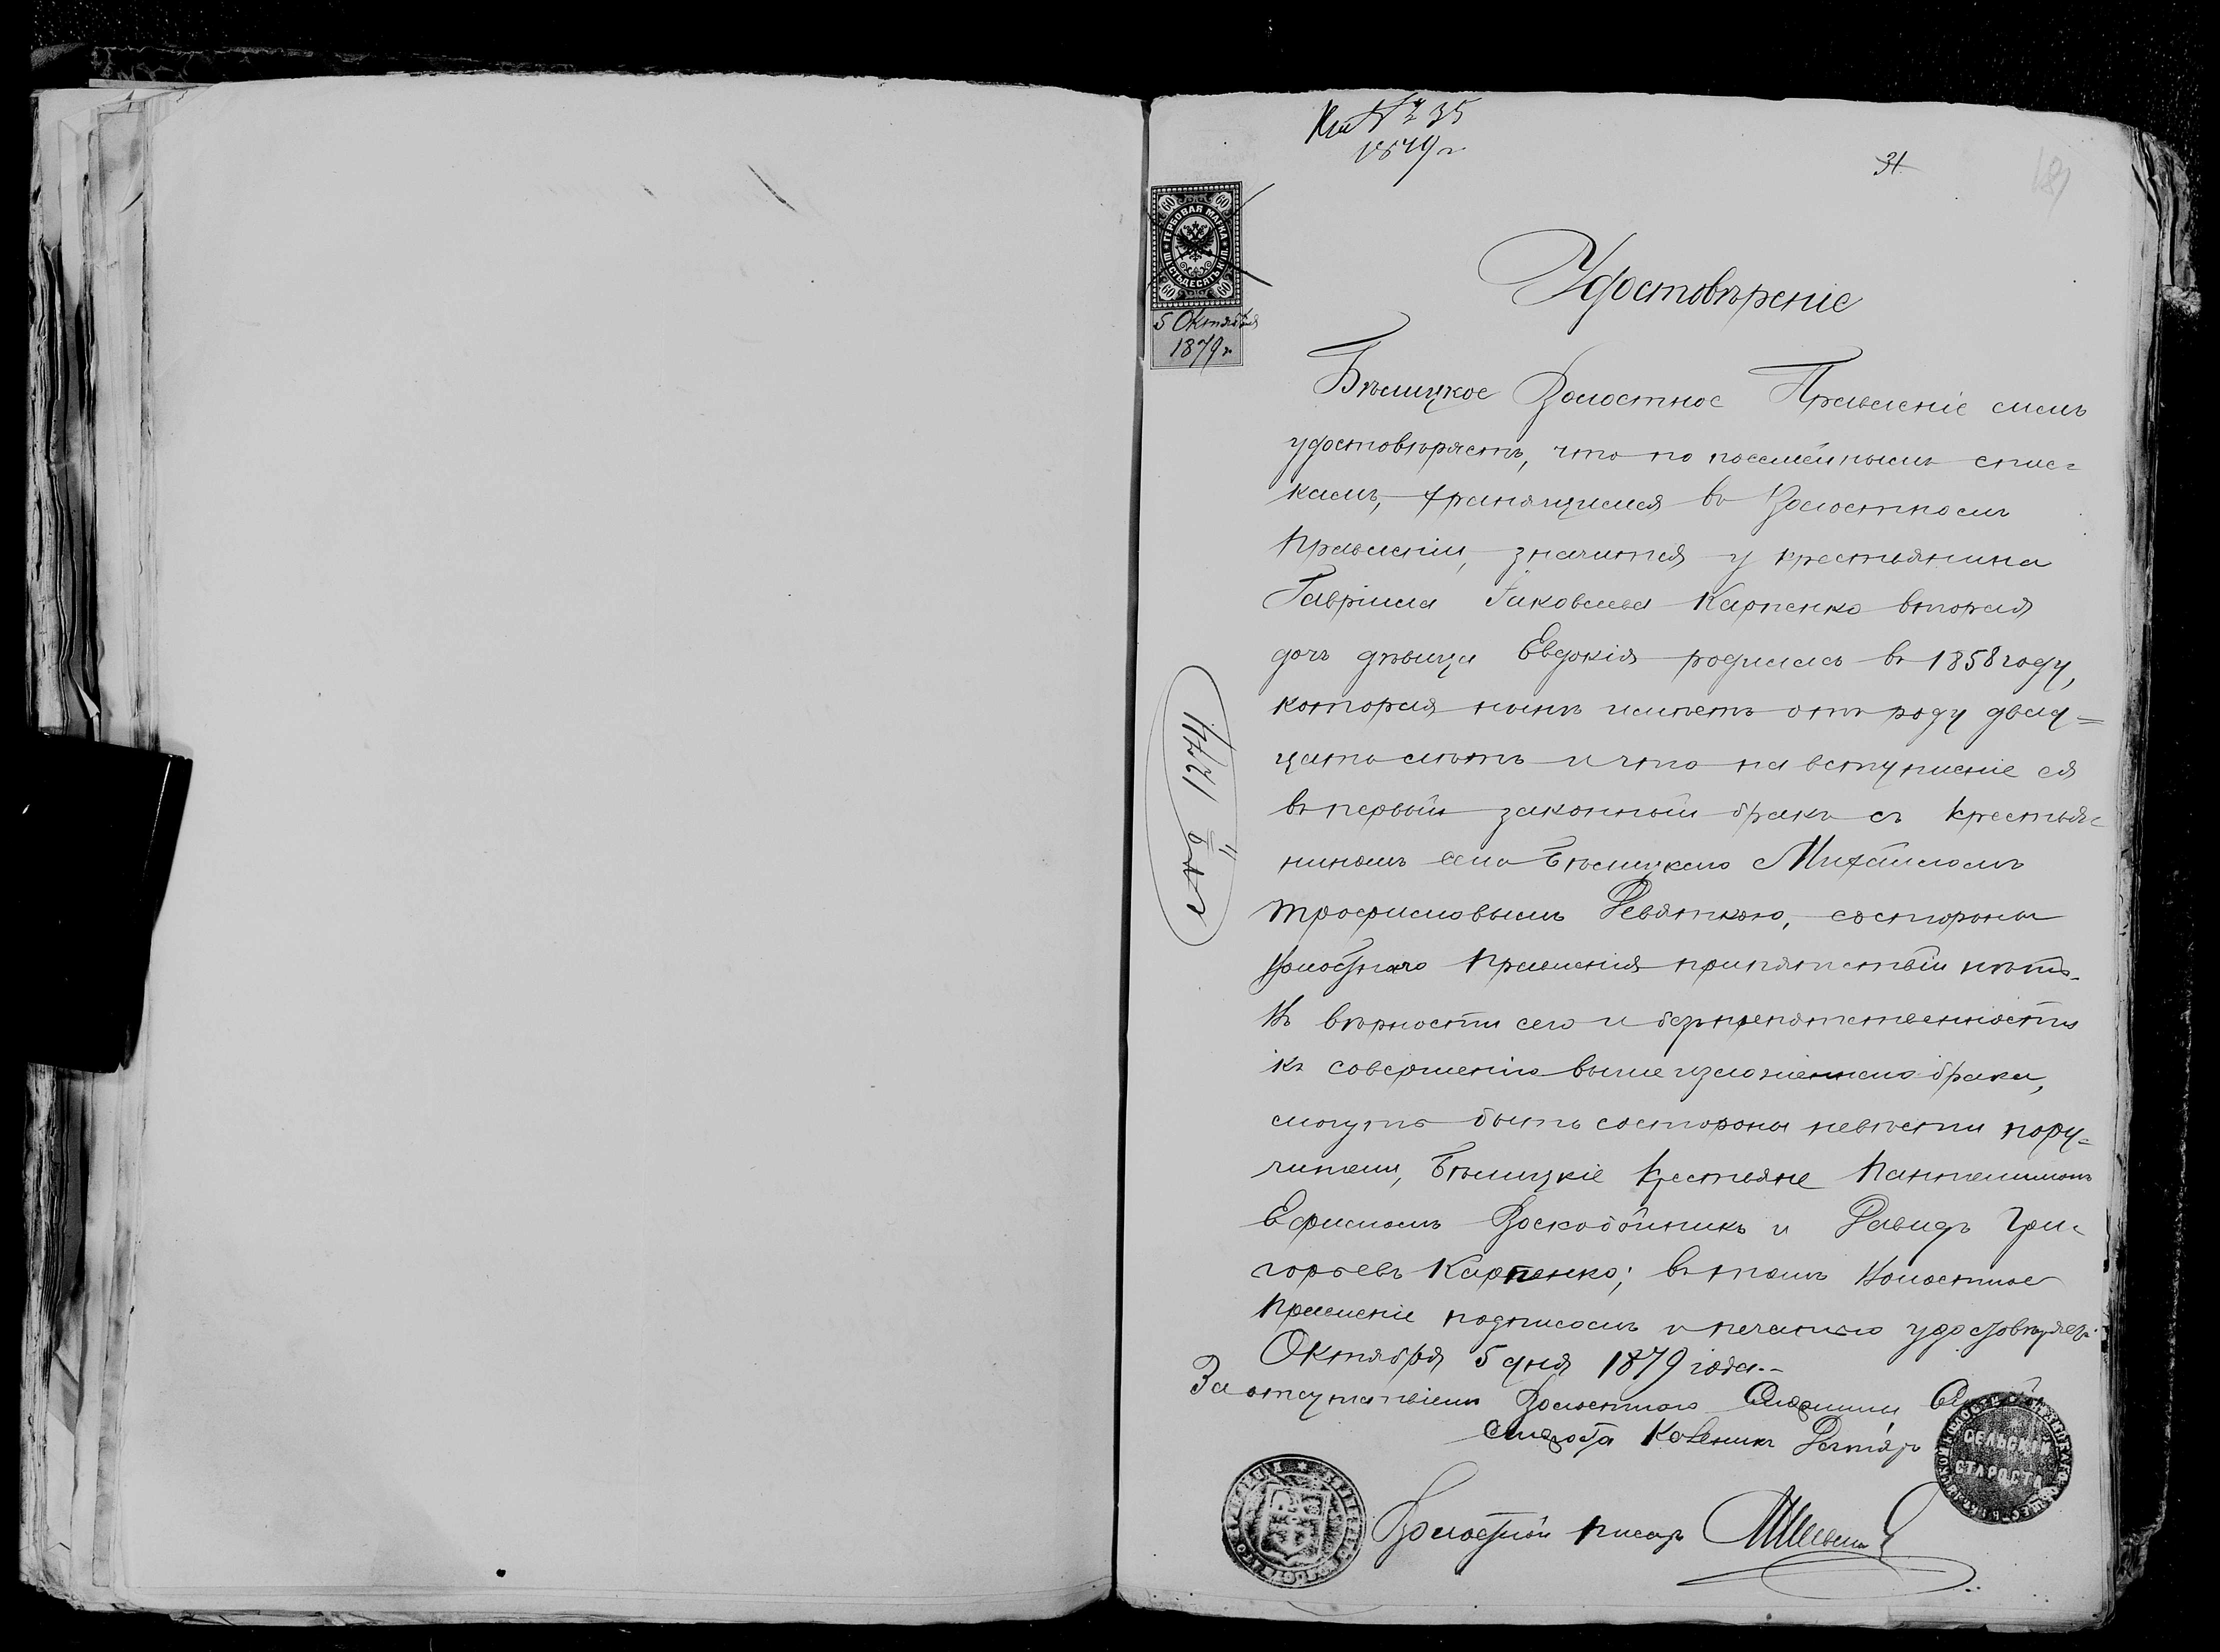 Кн № 35
1879 г
31
189
ГЕРБОВАЯ МАРКА
ШЕСТЬДЕСЯТЪ КОП.
60 60 60 60
5 Октября
1879 г.
Удостовѣреніе
Бѣлицкое Волостное Правленіе симъ
удостовѣряетъ, что по посемейнымъ спис-
камъ, хранящимся въ Волостномъ
Правленіи, значится у крестьянина
Гавріила Іаковлева Карпенко вторая
дочь дѣвица Евдокія родилась въ 1858 году,
которая нынѣ имѣетъ отъ роду двад-
цать лѣтъ и что на вступленіе ея
въ первый законный бракъ съ крестья-
ниномъ села Бѣлицкаго Михаиломъ
Трофимовымъ Девяткою, состороны
Волостнаго Правленія препятствій нѣтъ.
Къ вѣрности сего и безпрепятственности
къ совершенію вышеизложеннаго брака,
могутъ быть состороны невѣсты пору-
чители, Бѣлицкіе крестьяне Пантелимонъ
Ефимовъ Воскобойникъ и Давидъ Гри-
горьевъ Карпенко; въ томъ Волостное
Правленіе подписомъ и печатью удостовѣряетъ.
Октября 5 дня 1879 года.
За отсутствіемъ Волостного Старшины
Староста
СЕЛЬСКІЙ
СТАРОСТА
Волостной писарь